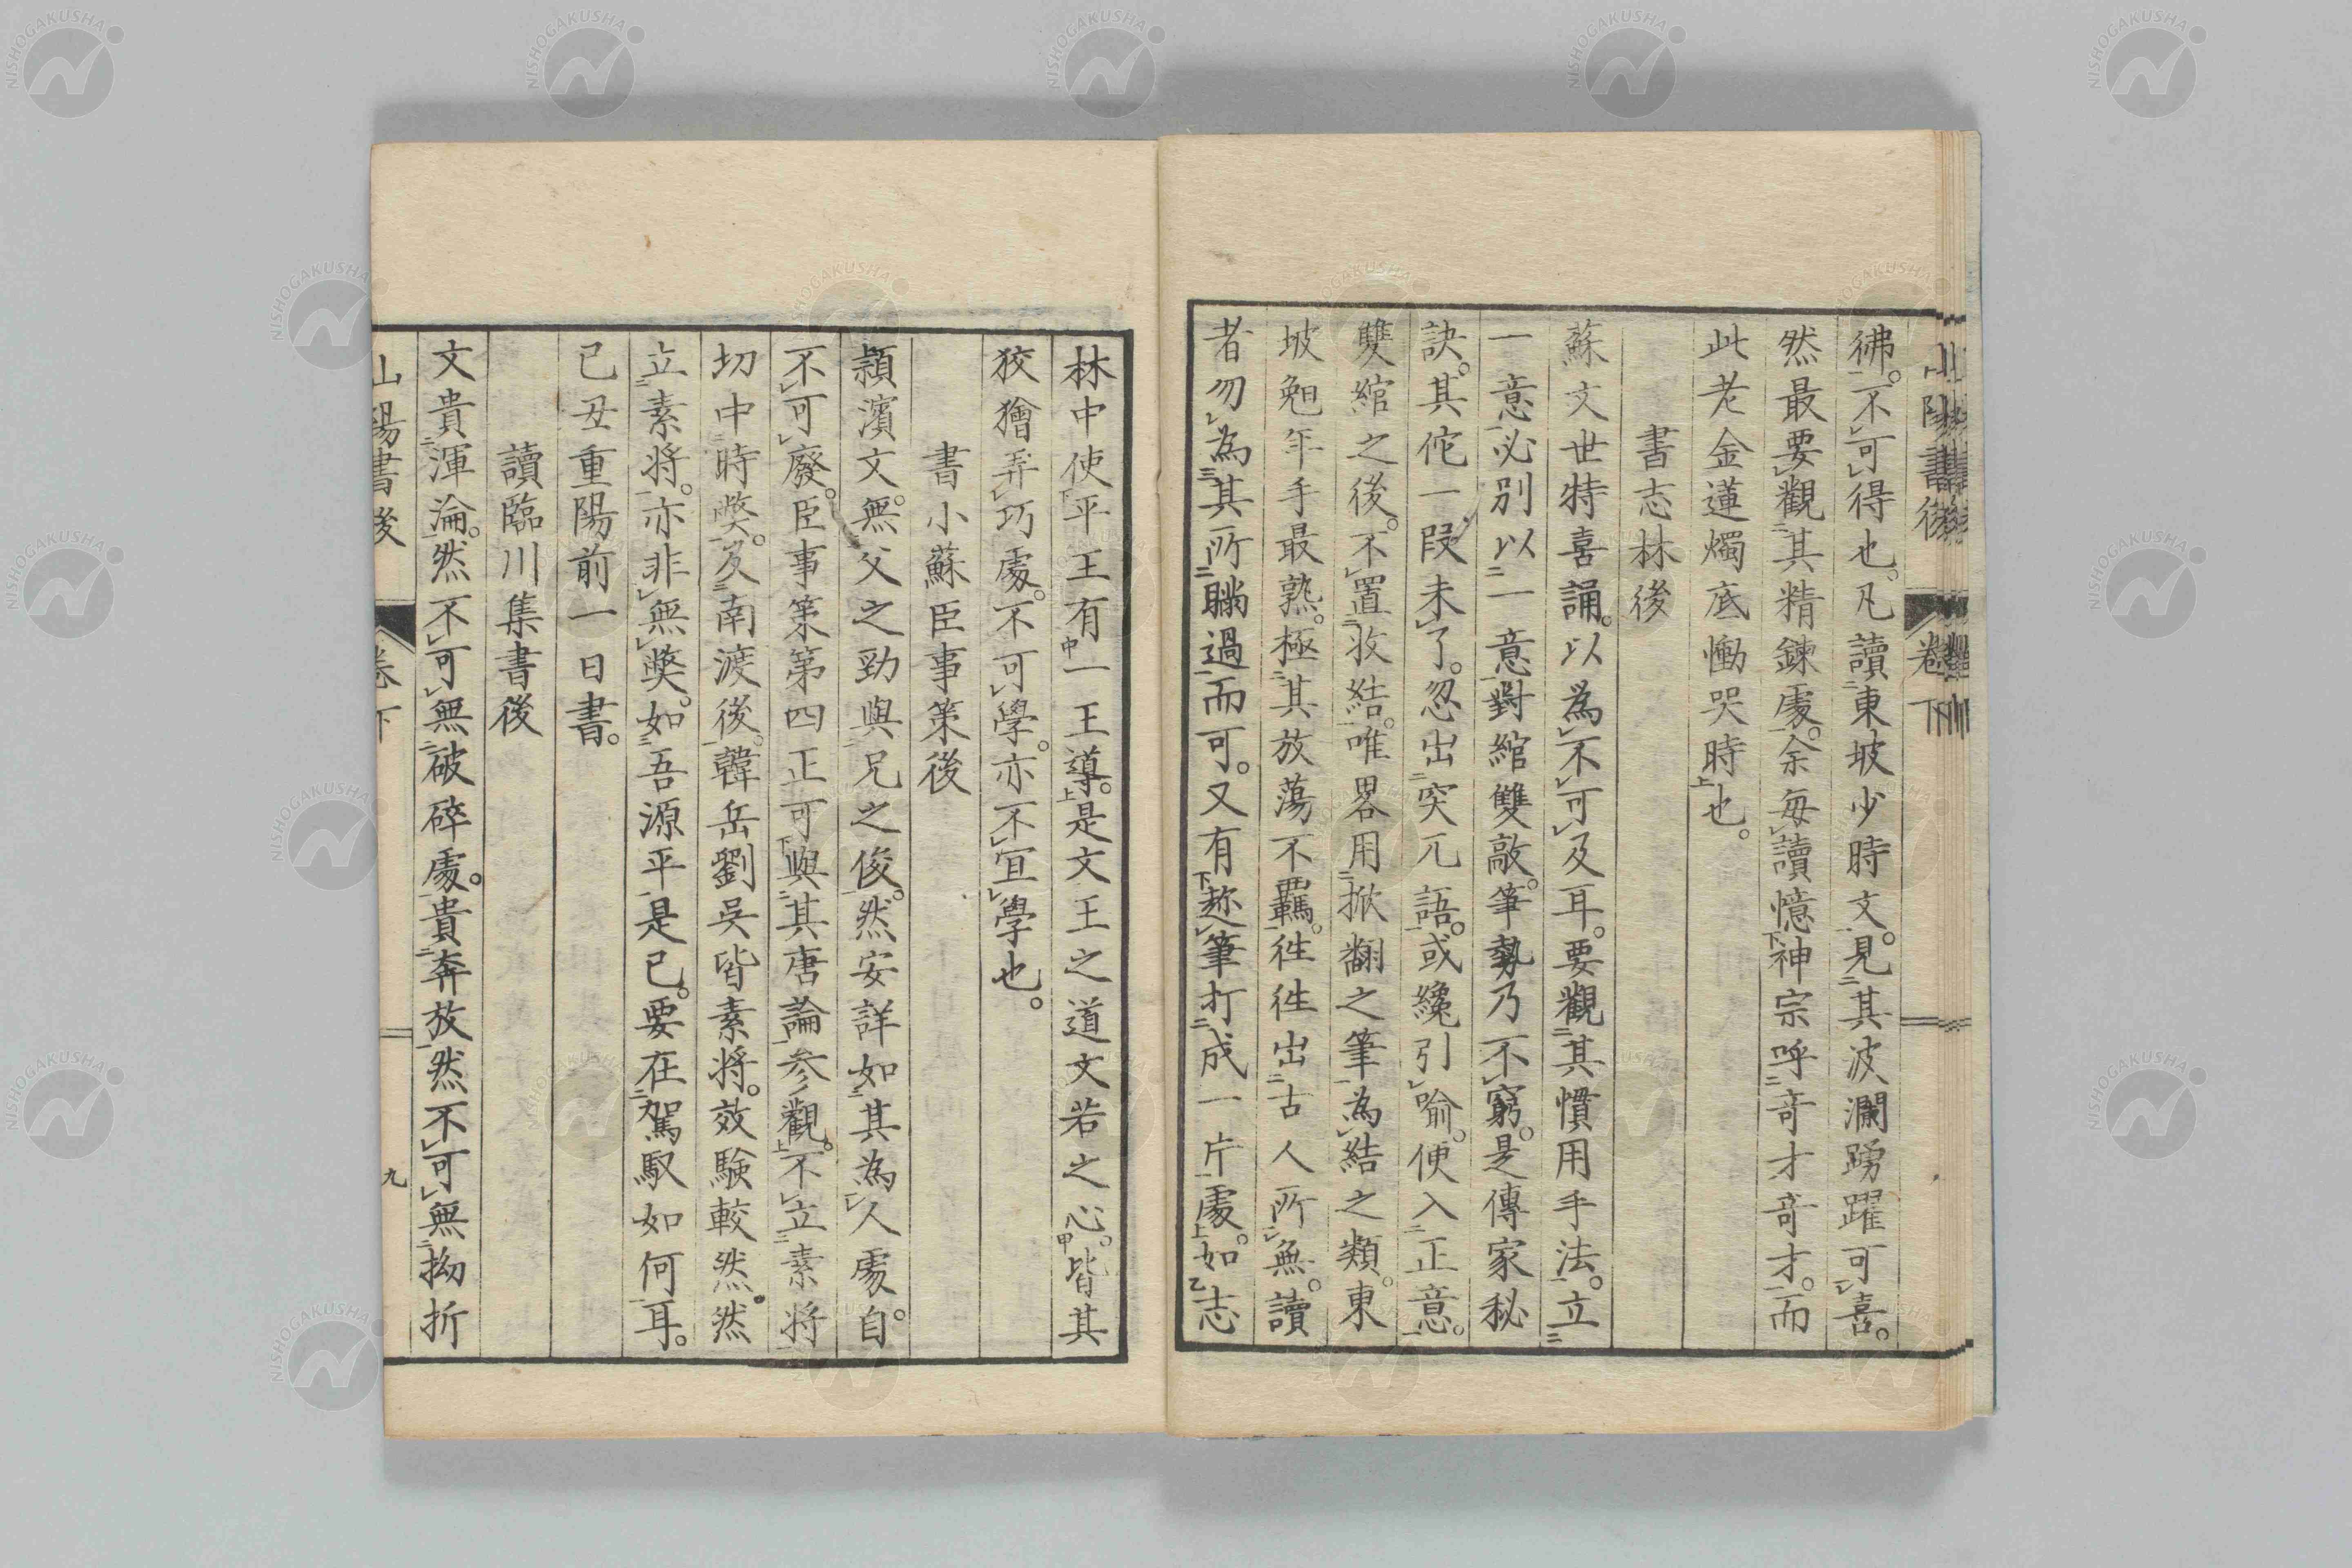 山陽書後 卷下
彿。不可得也。凡讀東坡少時文。見其波瀾踴躍可喜。
然最要觀其精鍊處。余每讀憶神宗呼奇才奇才。而
此老金蓮燭底慟哭時也。
書志林後
蘇文世特喜誦。以為不可及耳。要觀其慣用手法。立
一意必別以一意對綰雙敲。筆勢乃不窮。是傳家秘
訣。其佗一段未了。忽出突兀語。或纔引喻。便入正意。
雙綰之後。不置收結。唯畧用掀翻之筆為結之類。東
坡勉年手最熟。極其放蕩不羈。徃徃出古人所無。讀
者勿為其所瞞過而可。又有趂筆打成一片處。如志
林中使平王有一王導。是文王之道文若之心。皆其
狡獪弄巧處。不可學。亦不宜學也。
書小蘇臣事策後
潁濱文。無父之勁與兄之俊。然安詳如其為人處。自
不可廢。臣事策第四正可與其唐論參觀。不立素將
切中時獘。及南渡後。韓岳劉吳皆素將。效驗較然。然
立素將。亦非無獘。如吾源平是已。要在駕馭如何耳。
己丑重陽前一日書。
讀臨川集書後
文貴渾淪。然不可無破碎處。貴奔放。然不可無拗折
山陽書後 卷下 九
NISHOGAKUSHA